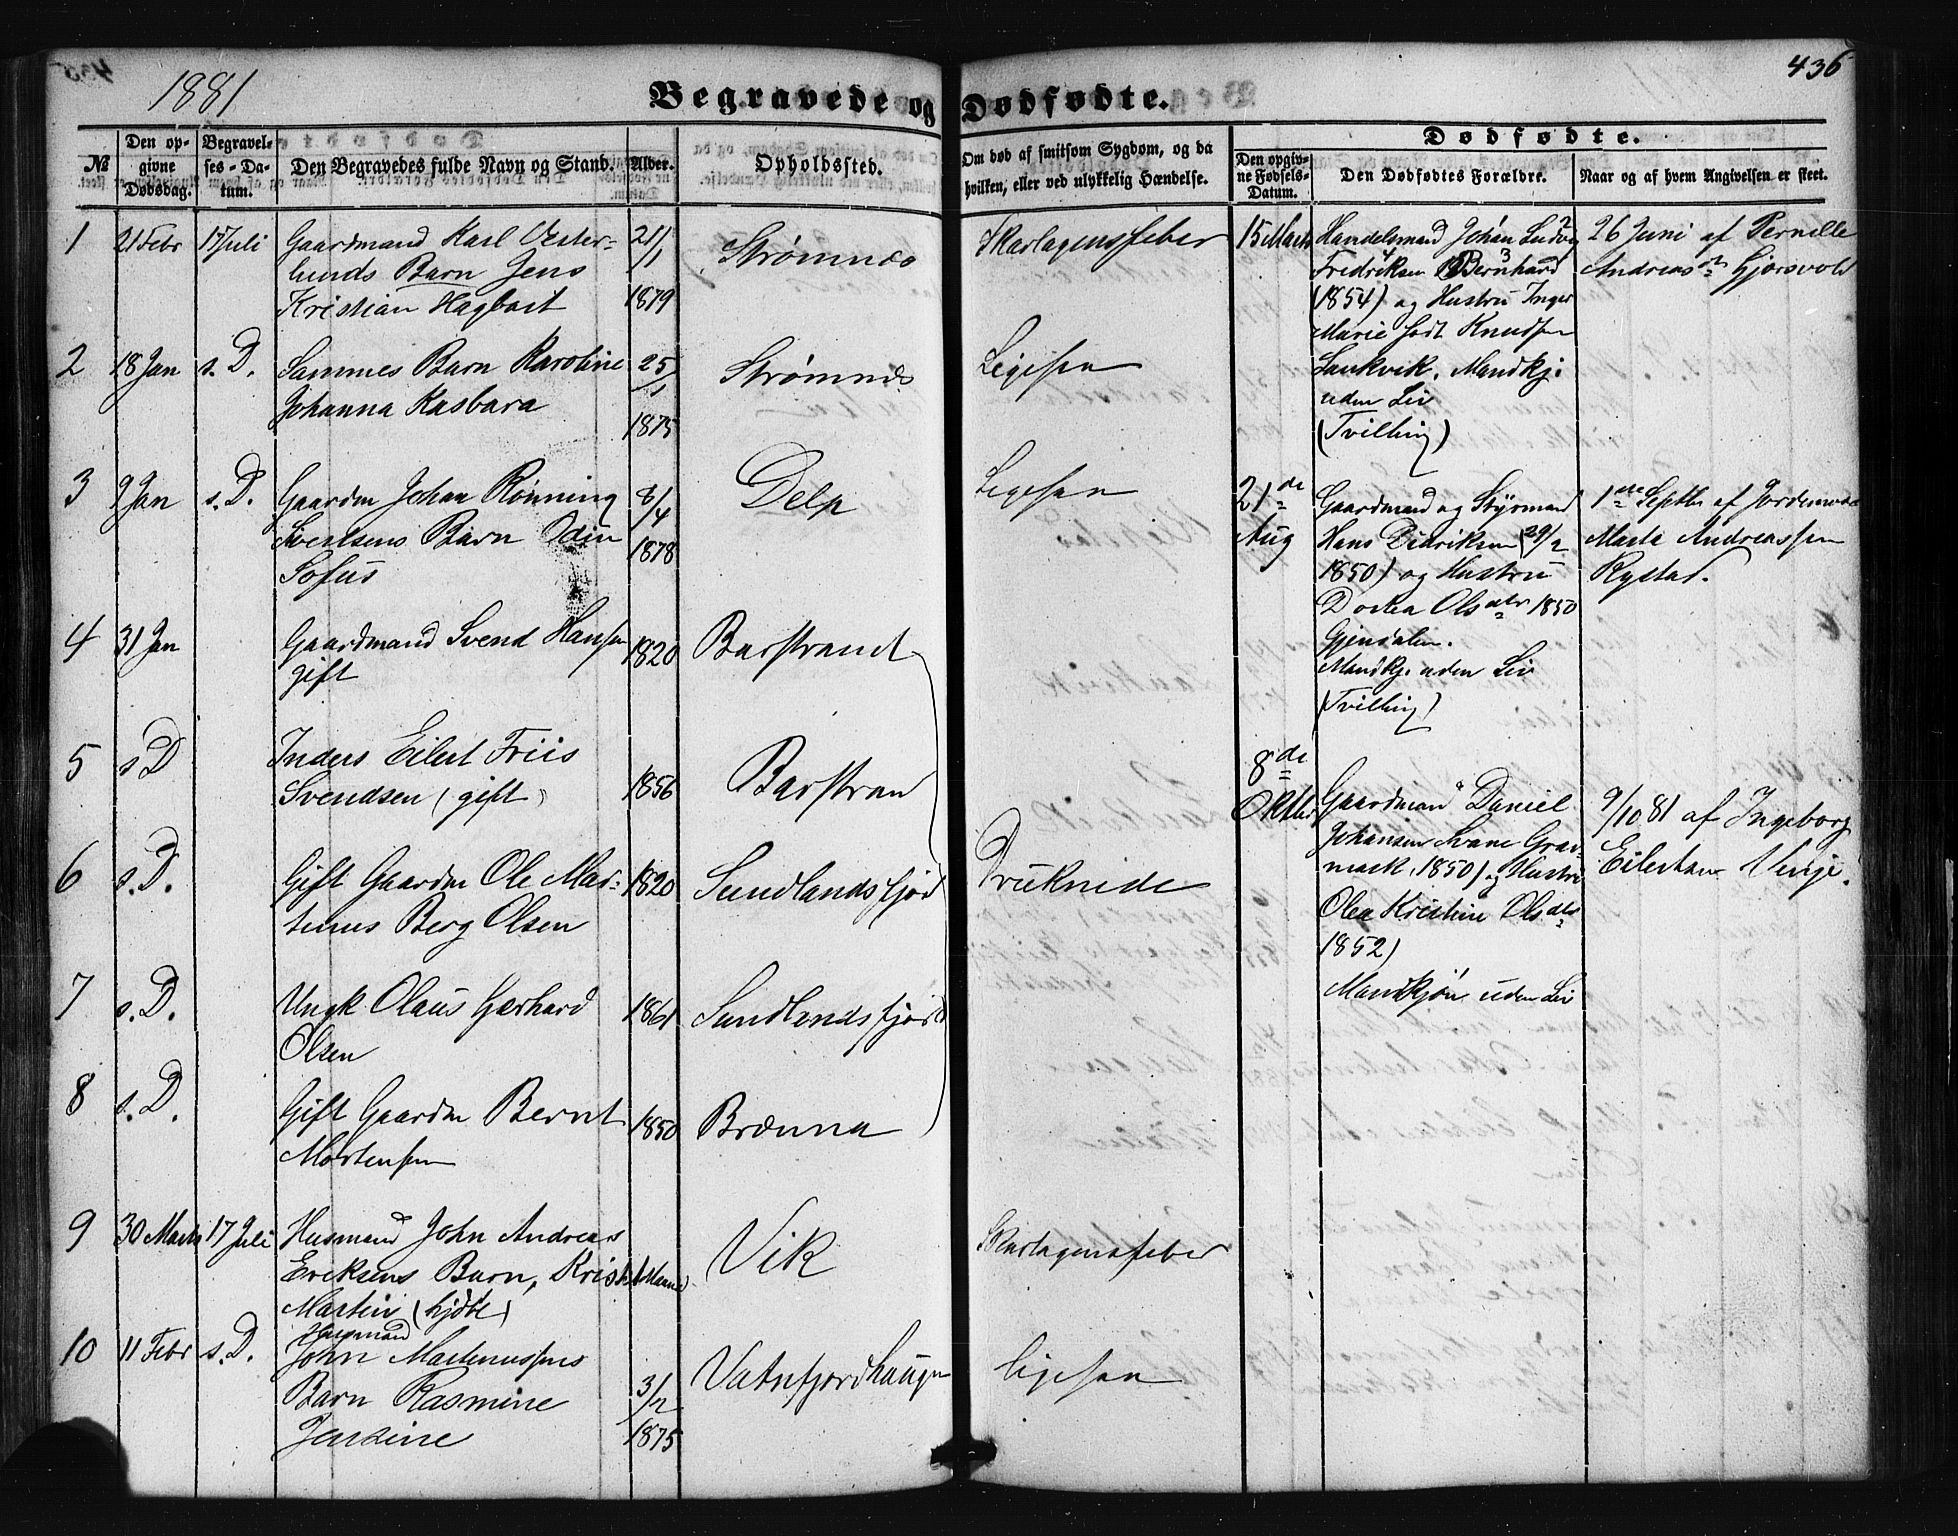 1881
436
Begravede og Dødfødte.
№
Den opgivne Dødsdag.
Begravelses-Datum.
Den Begravedes fulde Navn og Stand.
Alder.
Opholdssted.
Om død af smitsom Sygdom, og da hvilken, eller ved ulykkelig Hændelse.
Dødfødte.
Den opgivne Fødsels-Datum.
Den Dødfødtes Forældre.
Naar og af hvem Angivelsen er skeet.
1 21 Febr 17 Juli Gaardmand Karl Vester- 21/1 Strømnæs Skarlagensfeber
lunds Barn Jens
Kristian Hagbart 1879
2 18 Jan s. D. Sammes Barn Karoline 25/1 Strømnæs Ligesaa
Johanna Kasbara 1875
3 9 Jan s. D. Gaardm Johan Rønning 8/4 Delp Ligesaa
Sivertsens Barn Odin 1878
Sofus
4 31 Jan Gaardmand Svend Hansen 1820 Barstrand
gift
5 s D Inders Eilert Friis
Svendsen (gift) 1856 Barstran
6 s. D. Gift Gaardm Ole Mar- 1820 Sundlandsfjord Druknede
tinus Berg Olsen
7 s. D. Ungk Olaus Gerhard 1861 Sundlandsfjord
Olsen
8 s. D. Gift Gaardm Bernt 1850 Brænna
Mortensen
9 30 Marts 17 Juli Husmand John Andreas Vik Skarlagensfeber
Eriksens Barn, Krist
Martin (hjdbt)
10 11 Febr s. D. Husmand
John Martenussens Vatnfjordhaugen ligesaa
Barn Rasmine 3/2
Jensine 1875
15 Marts Handelsmand Johan Ludvig 26 Juni af Pernille
Fredriksen Bernhard Andreasdt Gjersvold
(1854) og Hustru Inger
Marie født Knudsen
Laukvik. Mandkj.
uden Liv
(Tvilling)
21de Aug Gaardmand og Styrmand 1ste Septb af Jordemoder
Hans Didriksen (29/2 Marta Andreassen
1850) og Hustru Rystad.
Dorthea Olsdtr 1850
Gjendalen.
Mandkj. uden Liv
(Tvilling)
8de
Oktbr Gaardmand Daniel 9/10 81 af Ingeborg
Johansen Svane Grav-
mark, 1850) og Hustru Eilertsen Venje.
Olea Kristine Olsdtr
1852)
Mandkjøn uden Liv